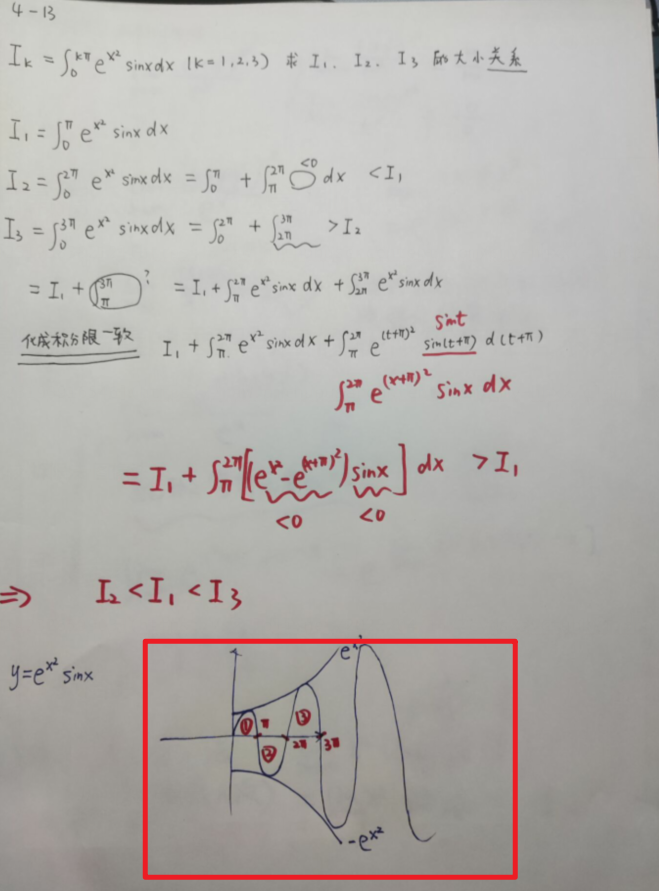 4-13
I_k = ∫_0^{kπ} e^{x²} sinx dx (k=1,2,3) 求 I₁. I₂. I₃ 的大小关系
I₁ = ∫_0^π e^{x²} sinx dx
I₂ = ∫_0^{2π} e^{x²} sinx dx = ∫_0^π + ∫_π^{2π} ◯ dx < I₁
<0
I₃ = ∫_0^{3π} e^{x²} sinx dx = ∫_0^{2π} + ∫_{2π}^{3π} > I₂
= I₁ + ∫_π^{3π} ? = I₁ + ∫_π^{2π} e^{x²} sinx dx + ∫_{2π}^{3π} e^{x²} sinx dx
化成积分限一致 I₁ + ∫_π^{2π} e^{x²} sinx dx + ∫_π^{2π} e^{(t+π)²} sin(t+π) d(t+π)
sint
∫_π^{2π} e^{(x+π)²} sinx dx
= I₁ + ∫_π^{2π} [(e^{x²} - e^{(x+π)²}) sinx] dx > I₁
<0 <0
⇒ I₂ < I₁ < I₃
y = e^{x²} sinx
e^{x²}
① π ③
② 2π 3π
-e^{x²}